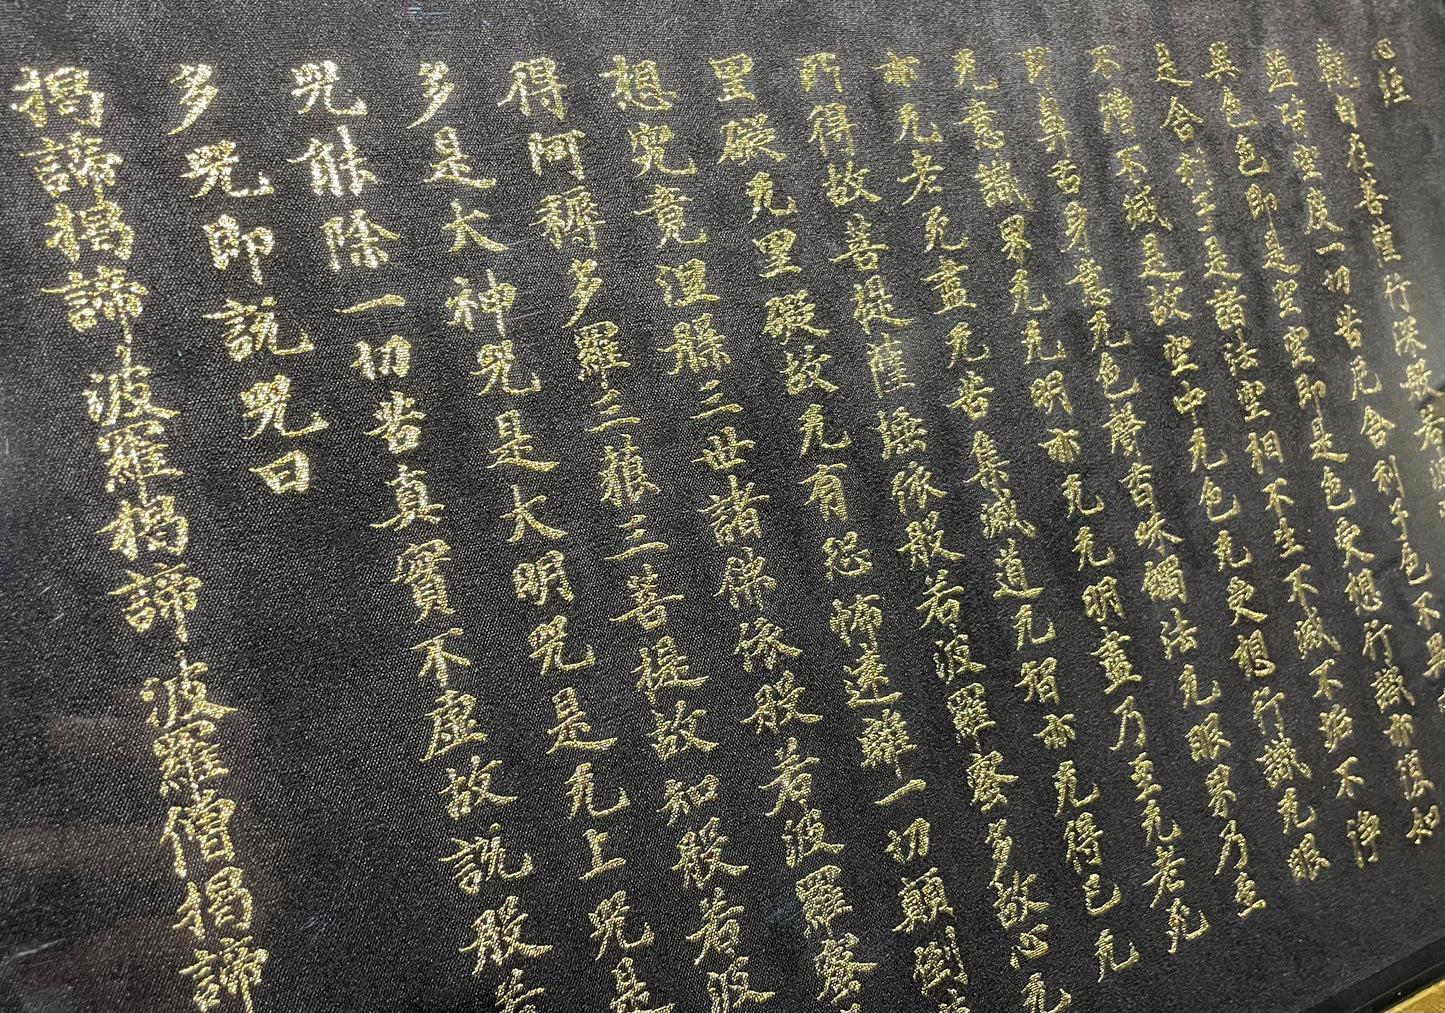 心經
觀自在菩薩行深般若波
蘊皆空度一切苦厄舍利子色不異
異色色即是空空即是色受想行識亦復如
是舍利子是諸法空相不生不滅不垢不淨
不增不減是故空中无色无受想行識无眼
耳鼻舌身意无色聲香味觸法无眼界乃至
无意識界无无明亦无无明盡乃至无老死
亦无老死盡无苦集滅道无智亦无得已无
所得故菩提薩埵依般若波羅蜜多故心无
罣礙无罣礙故无有恐怖遠離一切顛倒
想究竟涅槃三世諸佛依般若波羅蜜
得阿耨多羅三藐三菩提故知般若波
多是大神咒是大明咒是无上咒是
咒能除一切苦真實不虛故說般若
多咒即說咒曰
揭諦揭諦 波羅揭諦 波羅僧揭諦